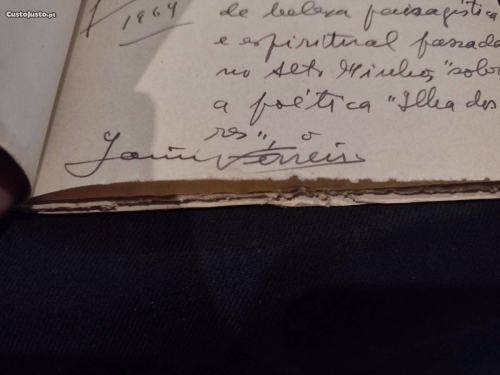 CustoJusto.pt
1964
de beleza paisagística
e espiritual passada
no Alto Minho, "sobr
a poética "Ilha dos
res", o
Ferreira